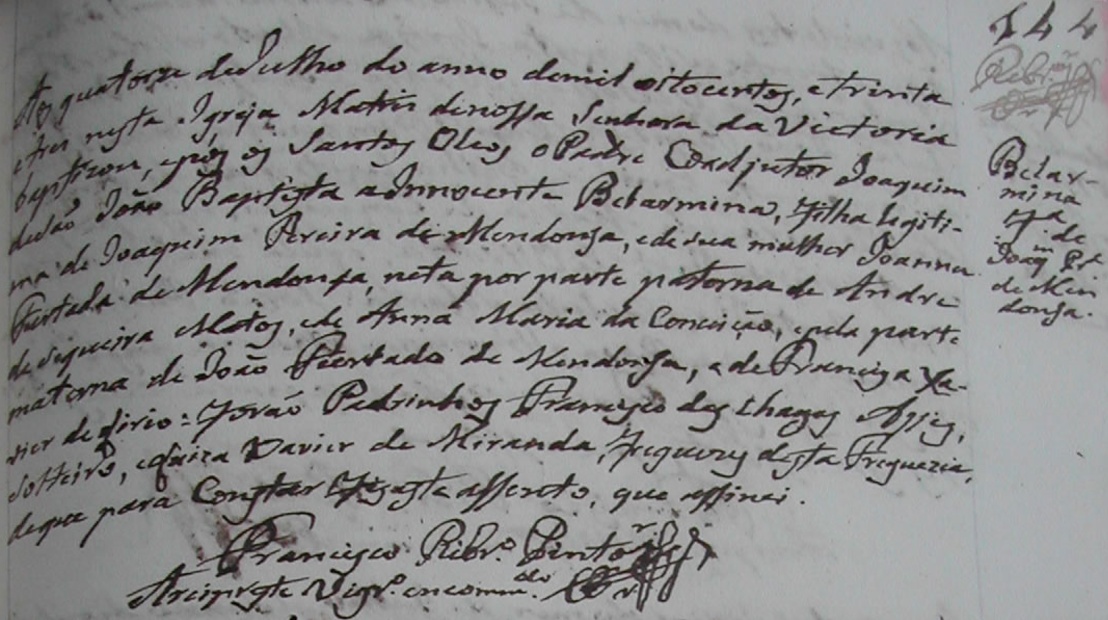 144
Ribr.º
Aos quatorze de Julho do anno de mil oitocentos, e trinta
e tres nesta Igreja Matris de nossa Senhora da Victoria
baptizou, e pos os Santos Oleos o Padre Coadjutor Joaquim
de São João Baptista a Innocente Belarmina, filha legiti-
ma de Joaquim Pereira de Mendonsa, e de sua mulher Joanna
Furtada de Mendonsa, neta por parte paterna de Andre
de Siqueira Matos, e de Anna Maria da Conceição, e pela parte
materna de João Furtado de Mendonsa, e de Francisca Xa-
vier de : Forão Padrinhos Francisco das Chagas Assis,
solteiro, e Xavier de Miranda, Freguezes desta Freguezia,
de que para Constar fiz este assento, que assinei.
Francisco Ribr.º Pinto
Arcipreste Vigr.º encomm.do
Belar-
mina
f.ª de
Joaq.m Pr.ª
de Men
donsa.